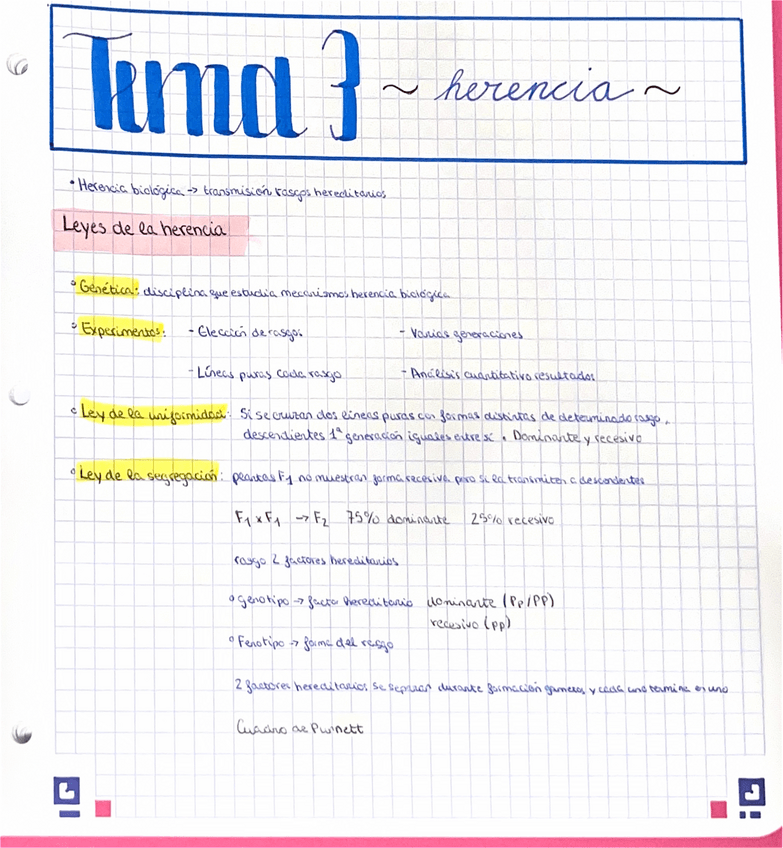 Tema 3 ~ herencia ~
• Herencia biológica → transmisión rasgos hereditarios
Leyes de la herencia
° Genética: disciplina que estudia mecanismos herencia biológica
° Experimentos: - Elección de rasgos - Varias generaciones
- Líneas puras cada rasgo - Análisis cuantitativo resultados
° Ley de la uniformidad: Si se cruzan dos líneas puras con formas distintas de determinado rasgo,
descendientes 1ª generación iguales entre sí. Dominante y recesivo
° Ley de la segregación: plantas F1 no muestran forma recesiva pero si la transmiten a descendentes
F1 x F1 → F2 75% dominante 25% recesivo
rasgo 2 factores hereditarios
° Genotipo → facto hereditario dominante (Pp/PP)
recesivo (pp)
° Fenotipo → forma del rasgo
2 factores hereditarios se separan durante formación gametos y cada uno termina en uno
Cuadro de Punnett